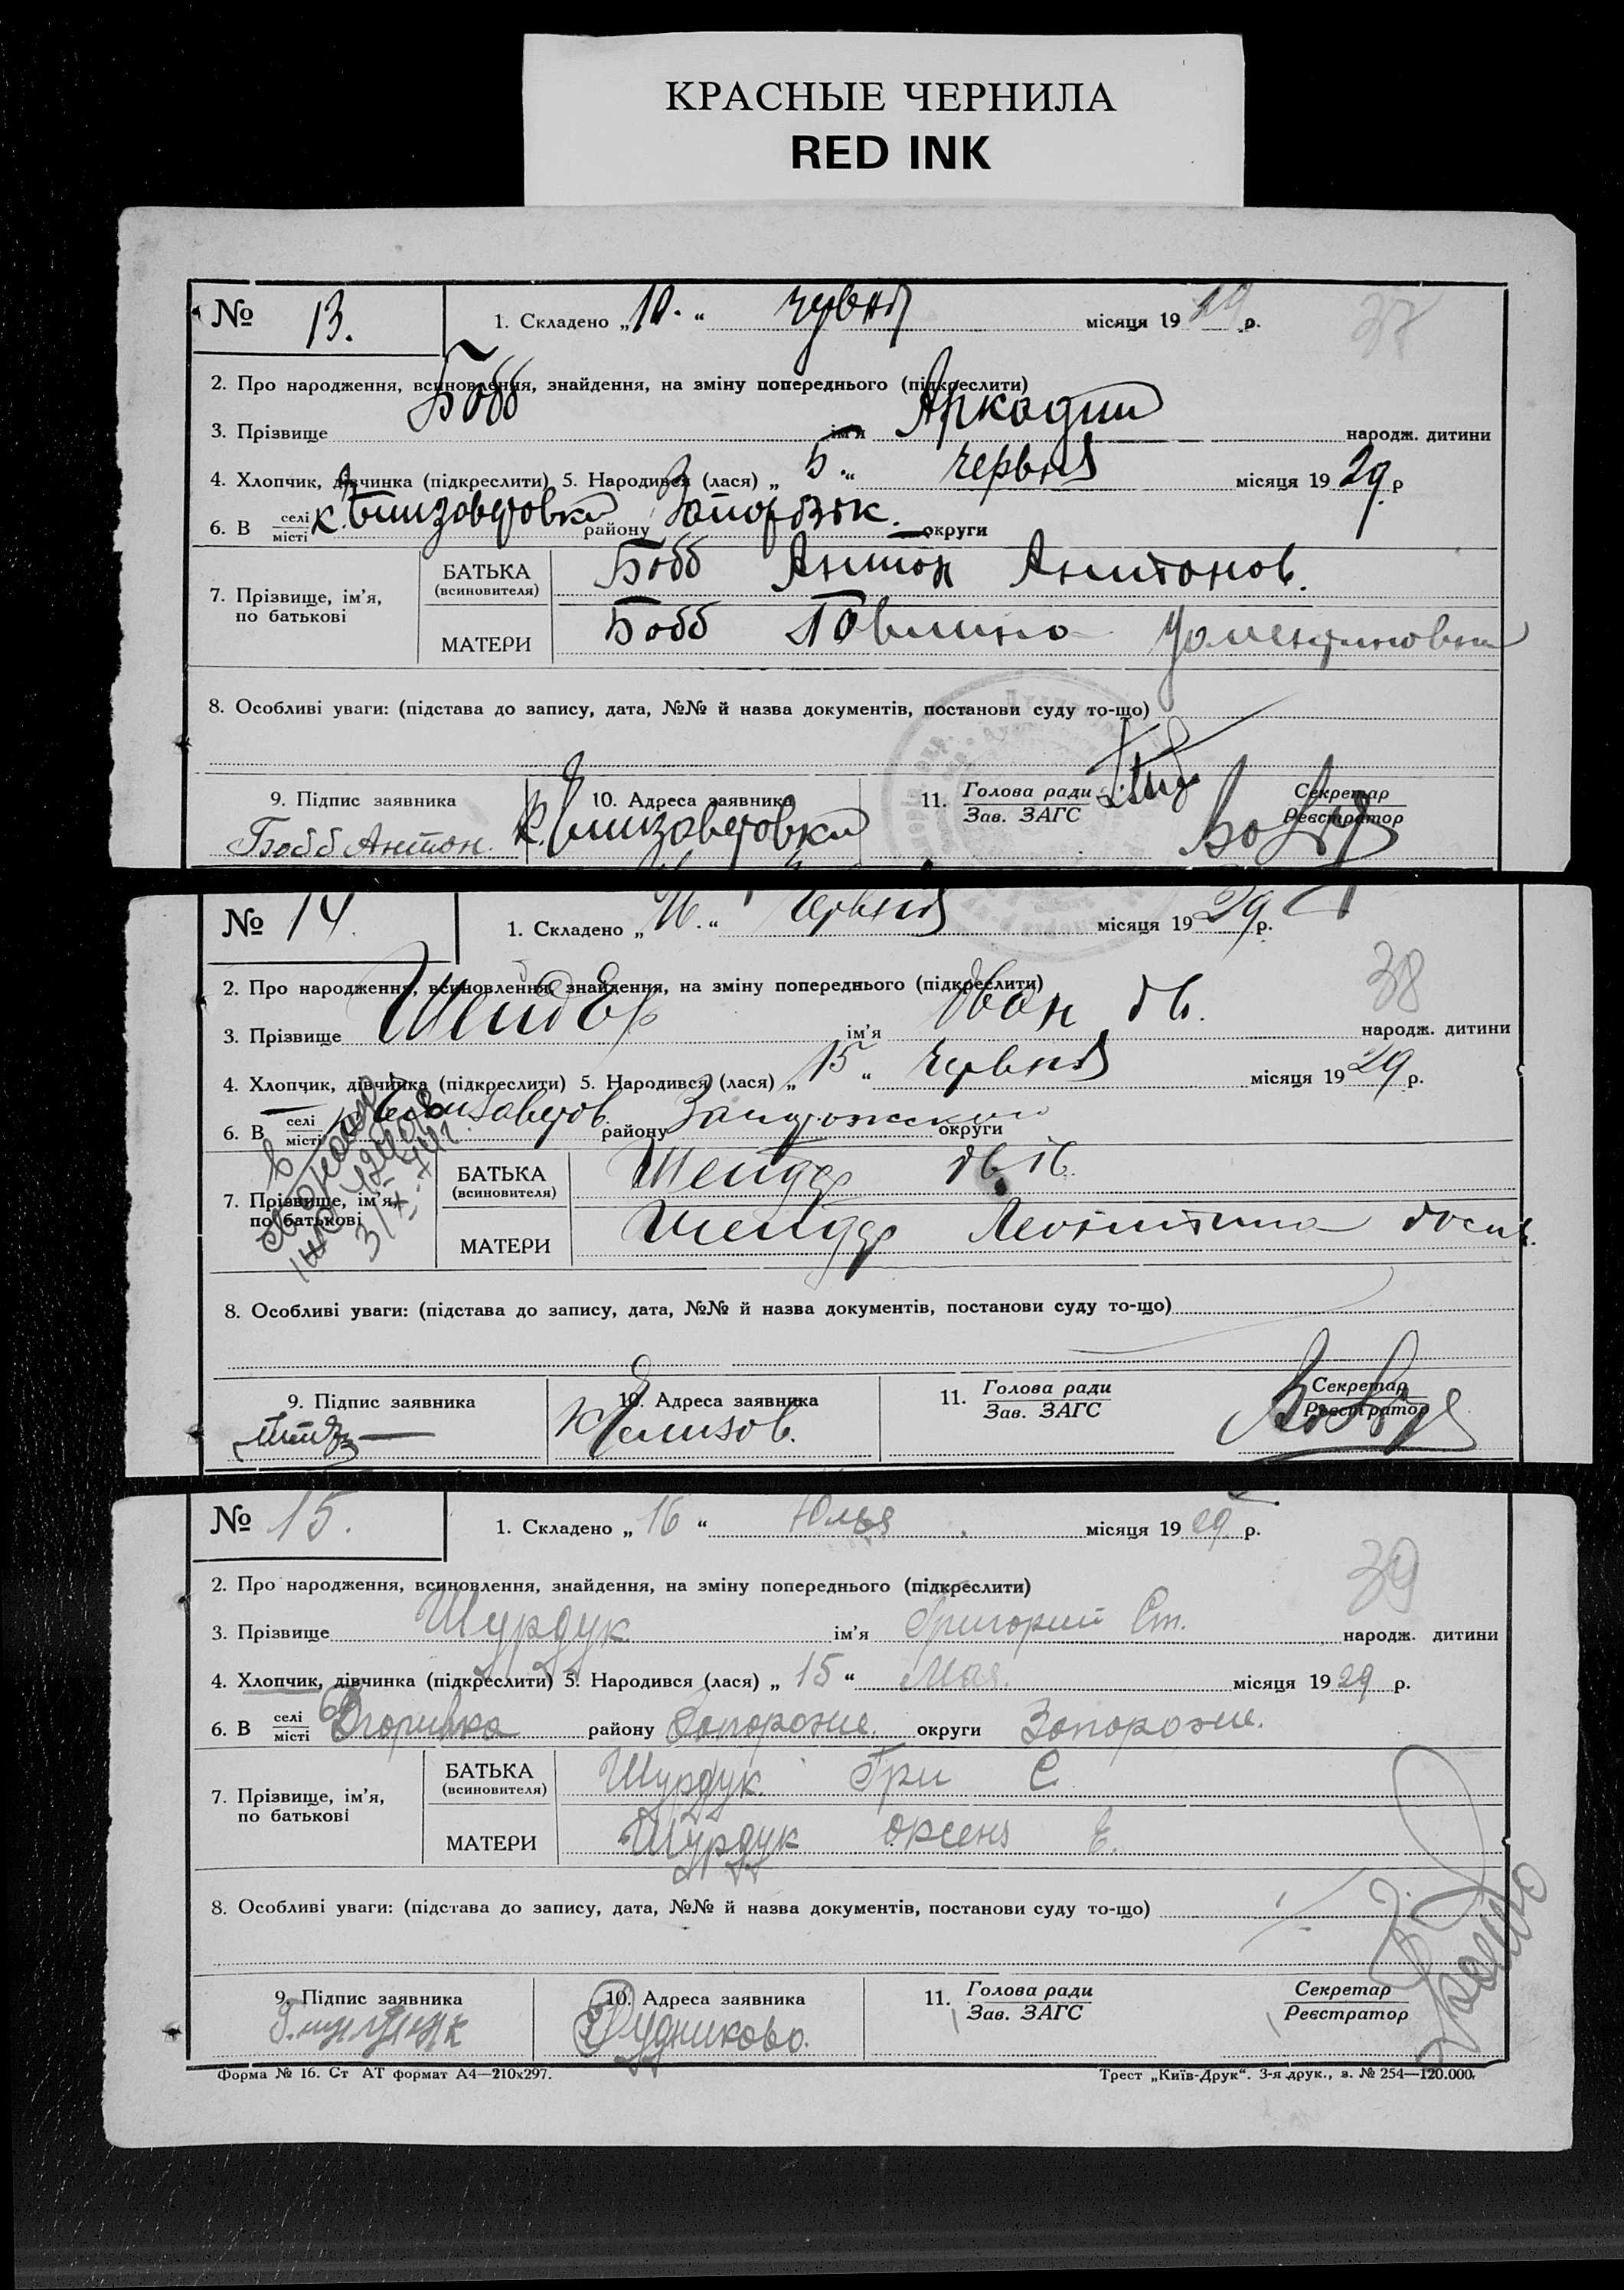 КРАСНЫЕ ЧЕРНИЛА
RED INK
№ 13. 1. Складено „10.“ червня місяця 1929 р. 37
2. Про народження, всиновлення, знайдення, на зміну попереднього (підкреслити)
3. Прізвище Бобб ім'я Аркадий народж. дитини
4. Хлопчик, дівчинка (підкреслити) 5. Народився (лася) „5.“ червня місяця 1929 р
6. В селі/місті к. Елизаветовки району Запорізк. округи
7. Прізвище, ім'я, по батькові
БАТЬКА (всиновителя) Бобб Антон Антонов.
МАТЕРИ Бобб
8. Особливі уваги: (підстава до запису, дата, №№ й назва документів, постанови суду то-що)
9. Підпис заявника 10. Адреса заявника 11. Голова ради/Зав. ЗАГС Секретар/Реєстратор
Бобб Антон. к. Елизаветовки
№ 14. 1. Складено „16.“ червня місяця 1929 р.
38
2. Про народження, всиновлення, знайдення, на зміну попереднього (підкреслити)
3. Прізвище Шейдер ім'я Иван Ив. народж. дитини
4. Хлопчик, дівчинка (підкреслити) 5. Народився (лася) „15“ червня місяця 1929 р.
6. В селі/місті к Елизаветов. району округи
7. Прізвище, ім'я, по батькові
БАТЬКА (всиновителя) Шейдер Ив. Ив.
МАТЕРИ Шейдер Леонтина
8. Особливі уваги: (підстава до запису, дата, №№ й назва документів, постанови суду то-що)
9. Підпис заявника 10. Адреса заявника 11. Голова ради/Зав. ЗАГС Секретар/Реєстратор
к Елизов.
№ 15. 1. Складено „16“ Юлья місяця 1929 р.
39
2. Про народження, всиновлення, знайдення, на зміну попереднього (підкреслити)
3. Прізвище Шурдук ім'я Григорий Ст. народж. дитини
4. Хлопчик, дівчинка (підкреслити) 5. Народився (лася) „15“ Мая. місяця 1929 р.
6. В селі/місті району Запорожье. округи Запорожье.
7. Прізвище, ім'я, по батькові
БАТЬКА (всиновителя) Шурдук. Гри С
МАТЕРИ Шурдук Оксеня Е.
8. Особливі уваги: (підстава до запису, дата, №№ й назва документів, постанови суду то-що)
9. Підпис заявника 10. Адреса заявника 11. Голова ради/Зав. ЗАГС Секретар/Реєстратор
Рудниково.
Форма № 16. Ст АТ формат А4—210х297. Трест „Київ-Друк“. 3-я друк., з. № 254—120.000.